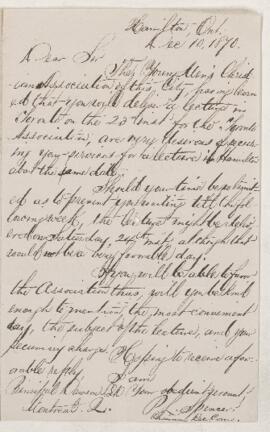 Hamilton, Ont.
Dec 10, 1890.
Dear Sir
The Young Men's Christ-
ian Association of this City, having learn-
ed that you will deliver a lecture in
Toronto on the 23d inst for the Toronto
Association, are very desirous of secur-
ing your services for a lecture in Hamilton
about the same date.
Should your time be so limit-
ed as to prevent your waiting till the fol-
lowing week, the lecture might be deliv-
ered on Saturday, 24th inst, although that
would not be a very favorable day.
If you will be able to favor
the Association thus, will you be kind
enough to mention, the most convenient
day, the subject of the lecture, and your
pecuniary charge. Hoping to receive a favor-
able reply
I am
Principal Dawson Your obedient servant
Montreal. Q. Spencer
Lec Com.